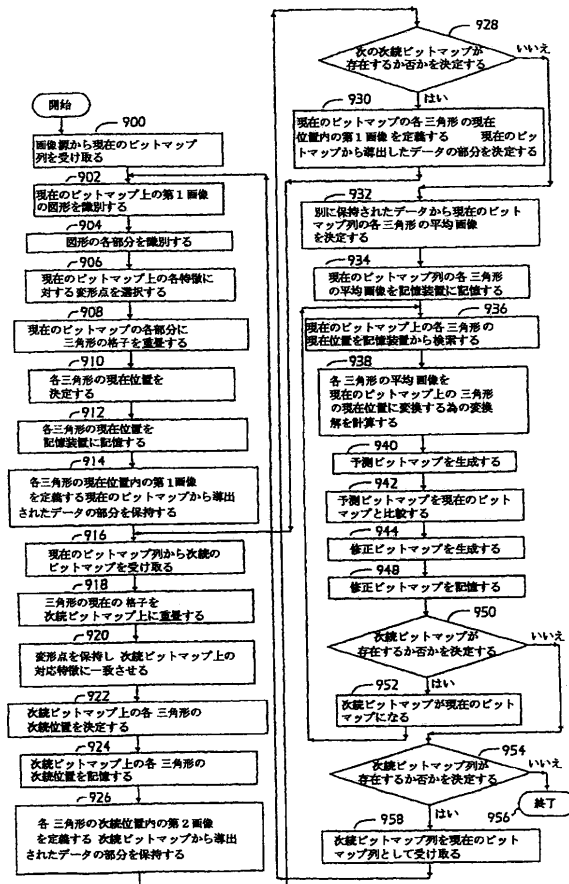 開始
900
画像源から現在のビットマップ
列を受け取る
902
現在のビットマップ上の第1画像
の図形を識別する
904
図形の各部分を識別する
906
現在のビットマップ上の各特徴に
対する変形点を選択する
908
現在のビットマップの各部分に
三角形の格子を重畳する
910
各三角形の現在位置を
決定する
912
各三角形の現在位置を
記憶装置に記憶する
914
各三角形の現在位置内の第1画像
を定義する現在のビットマップから導出
されたデータの部分を保持する
916
現在のビットマップ列から次続の
ビットマップを受け取る
918
三角形の現在の格子を
次続ビットマップ上に重畳する
920
変形点を保持し 次続ビットマップ上の
対応特徴に一致させる
922
次続ビットマップ上の各 三角形の
次続位置を決定する
924
次続ビットマップ上の各 三角形の
次続位置を記憶する
926
各 三角形の次続位置内の第2画像
を定義する 次続ビットマップから導出
されたデータの部分を保持する
928
次の次続ビットマップが
存在するか否かを決定する
いいえ
はい
930
現在のビットマップの各三角形の現在
位置内の第1画像を定義する 現在のビッ
トマップから導出したデータの部分を決定する
932
別に保持されたデータから現在のビット
マップ列の各三角形の平均画像
を決定する
934
現在のビットマップ列の各三角形
の平均画像を記憶装置に記憶する
936
現在のビットマップ上の各三角形の
現在位置を記憶装置から検索する
938
各三角形の平均画像を
現在のビットマップ上の 三角形
の現在位置に変換する為の変換
解を計算する
940
予測ビットマップを生成する
942
予測ビットマップを現在のビット
マップと比較する
944
修正ビットマップを生成する
948
修正ビットマップを記憶する
950
次続ビットマップが
存在するか否かを決定する
いいえ
はい
952
次続ビットマップが現在のビット
マップになる
954
次続ビットマップ列が
存在するか否かを決定する
いいえ
はい
956
終了
958
次続ビットマップ列を現在のビット
マップ列として受け取る